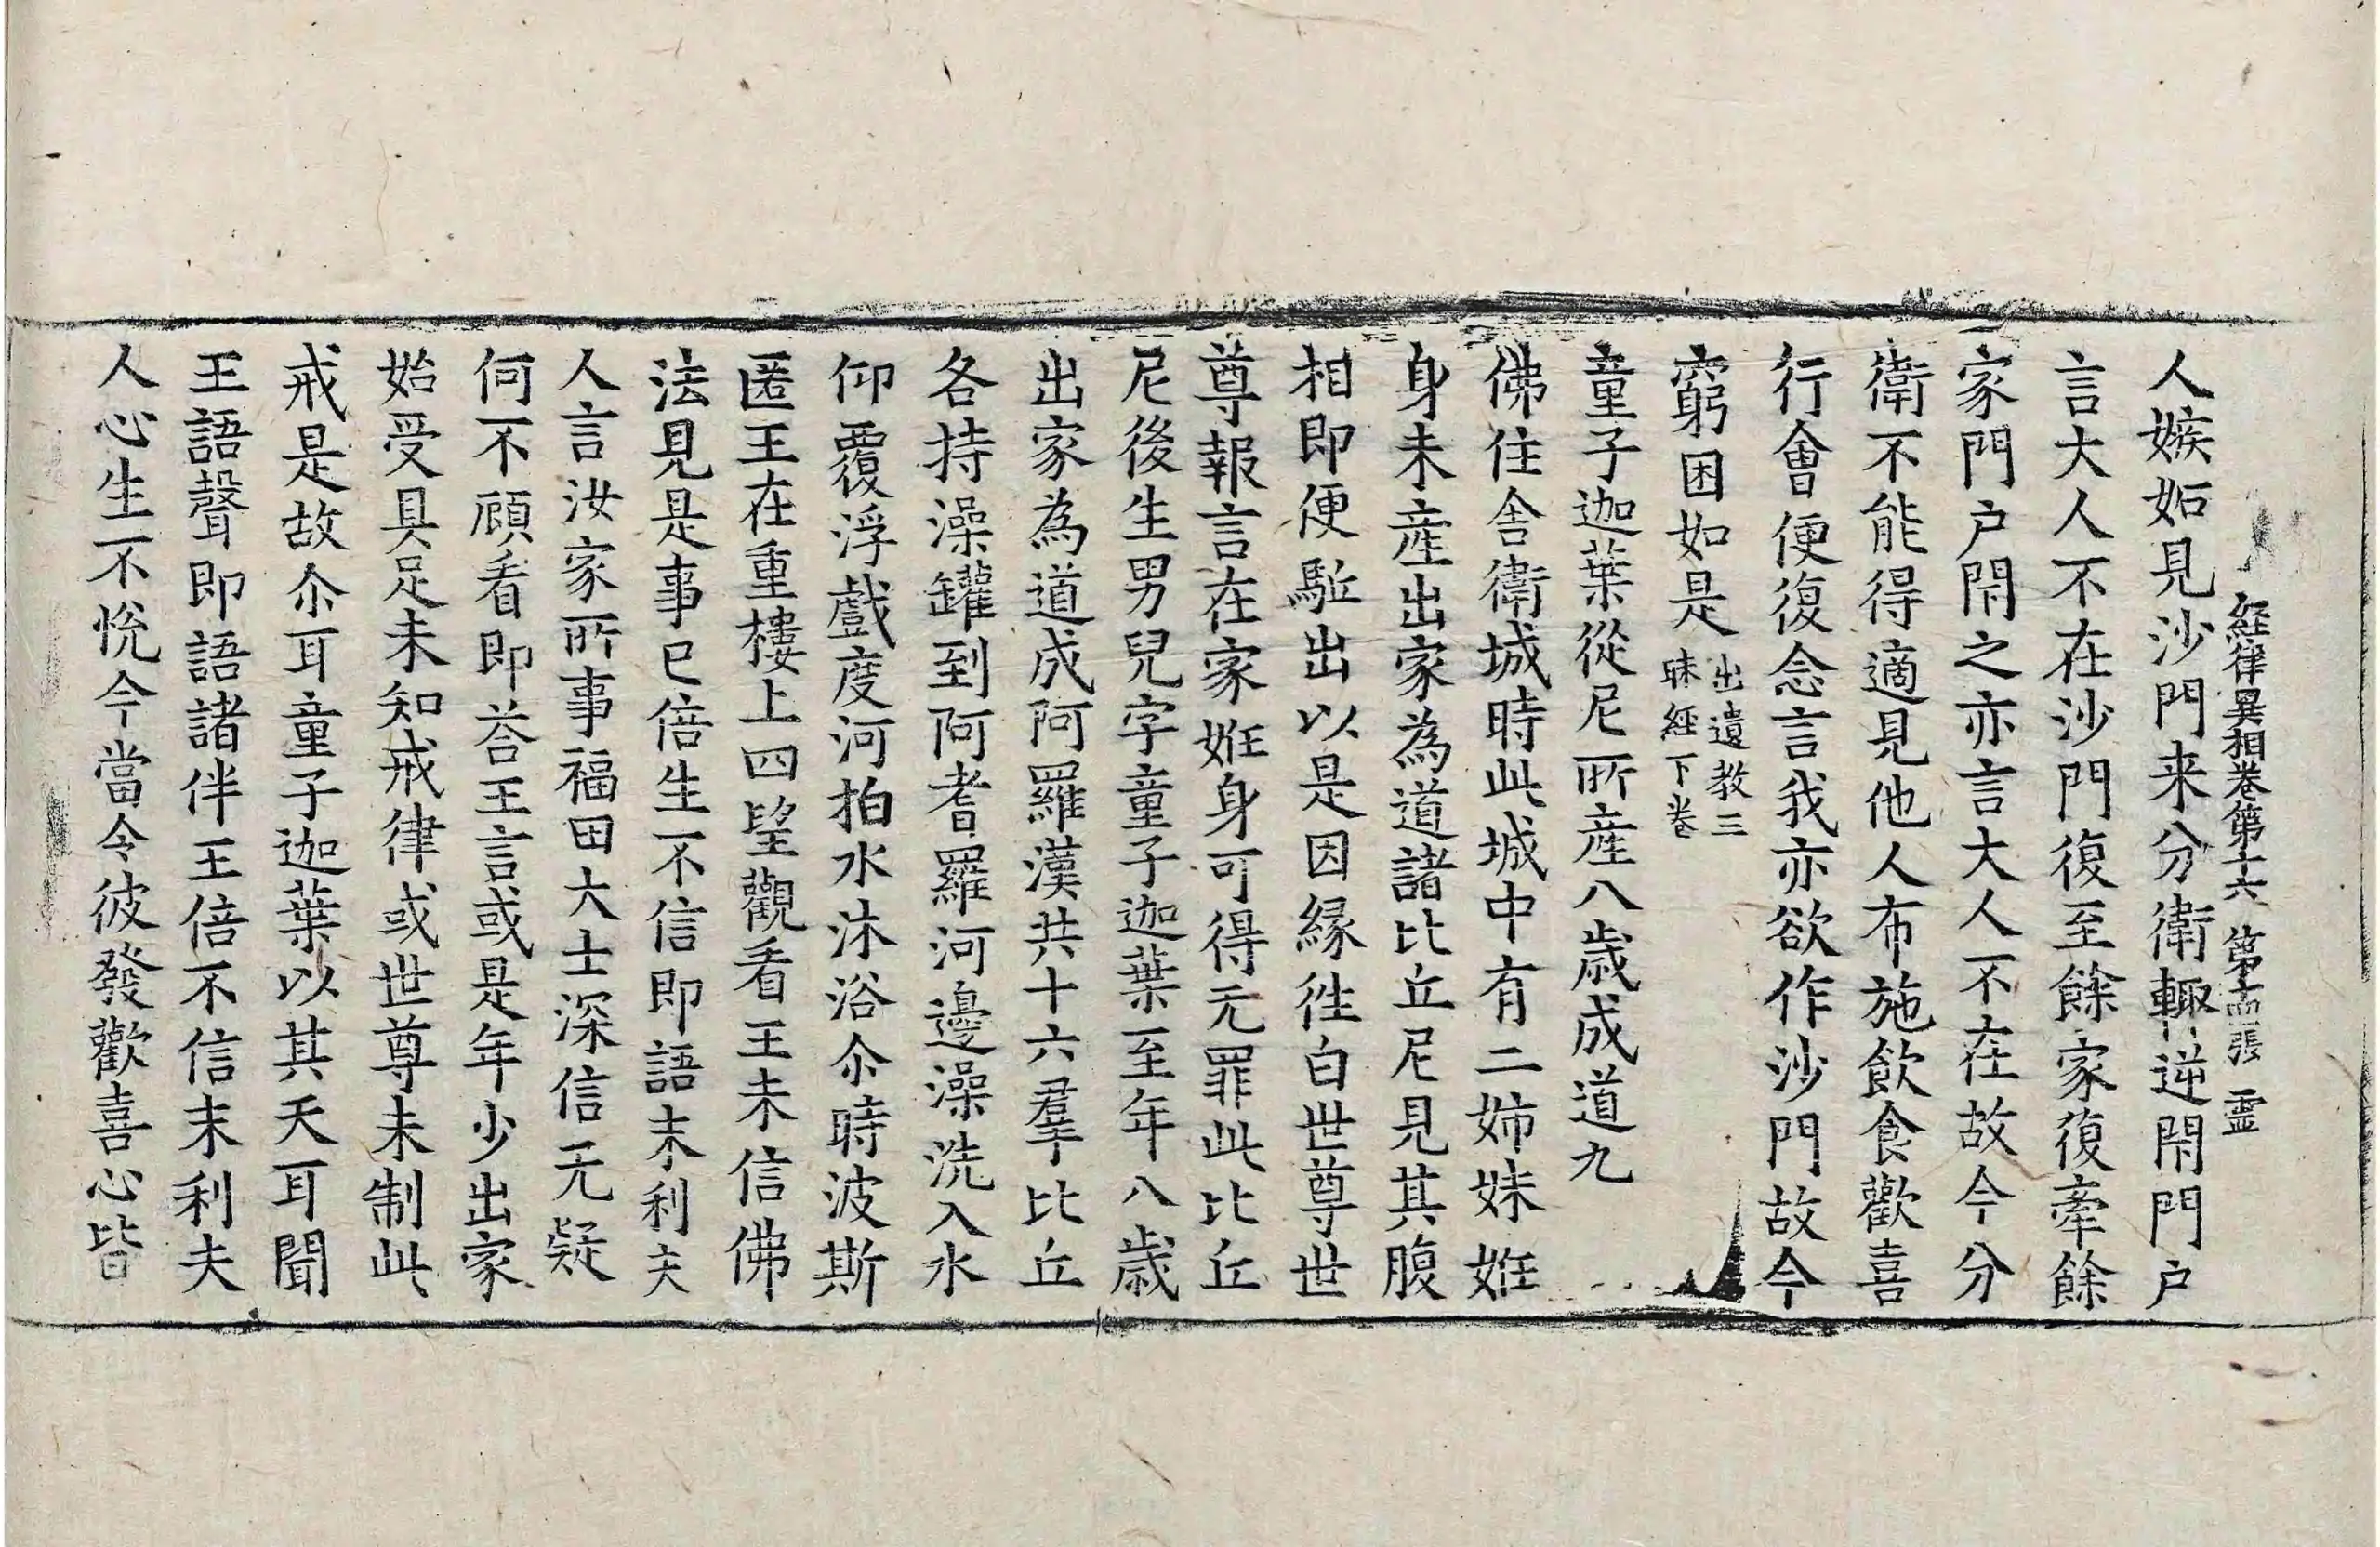 經律異相卷第十六 第十四張 靈
人嫉妬見沙門来分衛輙逆閇門户
言大人不在沙門復至餘家復牽餘
家門户閇之亦言大人不在故今分
衛不能得適見他人布施飲食歡喜
行會便復念言我亦欲作沙門故今
窮困如是出遺教三昧經下卷
童子迦葉從尼所產八歲成道九
佛住舍衛城時此城中有二姉妹姙
身未產出家為道諸比丘尼見其腹
相即便駈出以是因縁徃白世尊世
尊報言在家姙身可得无罪此比丘
尼後生男兒字童子迦葉至年八歲
出家為道成阿羅漢共十六羣比丘
各持澡罐到阿耆羅河邊澡洗入水
仰覆浮戲度河拍水沐浴尒時波斯
匿王在重樓上四望觀看王未信佛
法見是事已倍生不信即語末利夫
人言汝家所事福田大士深信无疑
何不顧看即荅王言或是年少出家
始受具足未知戒律或世尊未制此
戒是故尒耳童子迦葉以其天耳聞
王語聲即語諸伴王倍不信末利夫
人心生不悅今當令彼發歡喜心皆